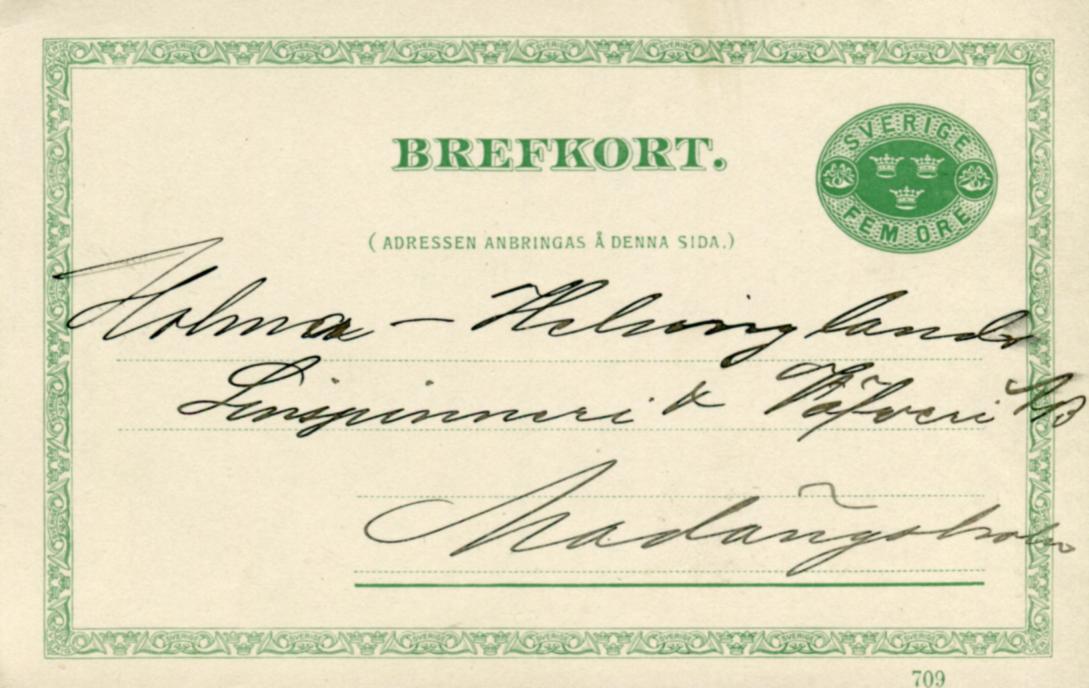 BREFKORT.
SVERIGE
FEM ÖRE
(ADRESSEN ANBRINGAS Å DENNA SIDA.)
Holma – Helsinglands
Linspinneri & Väfveri AB
Madängsholm
709